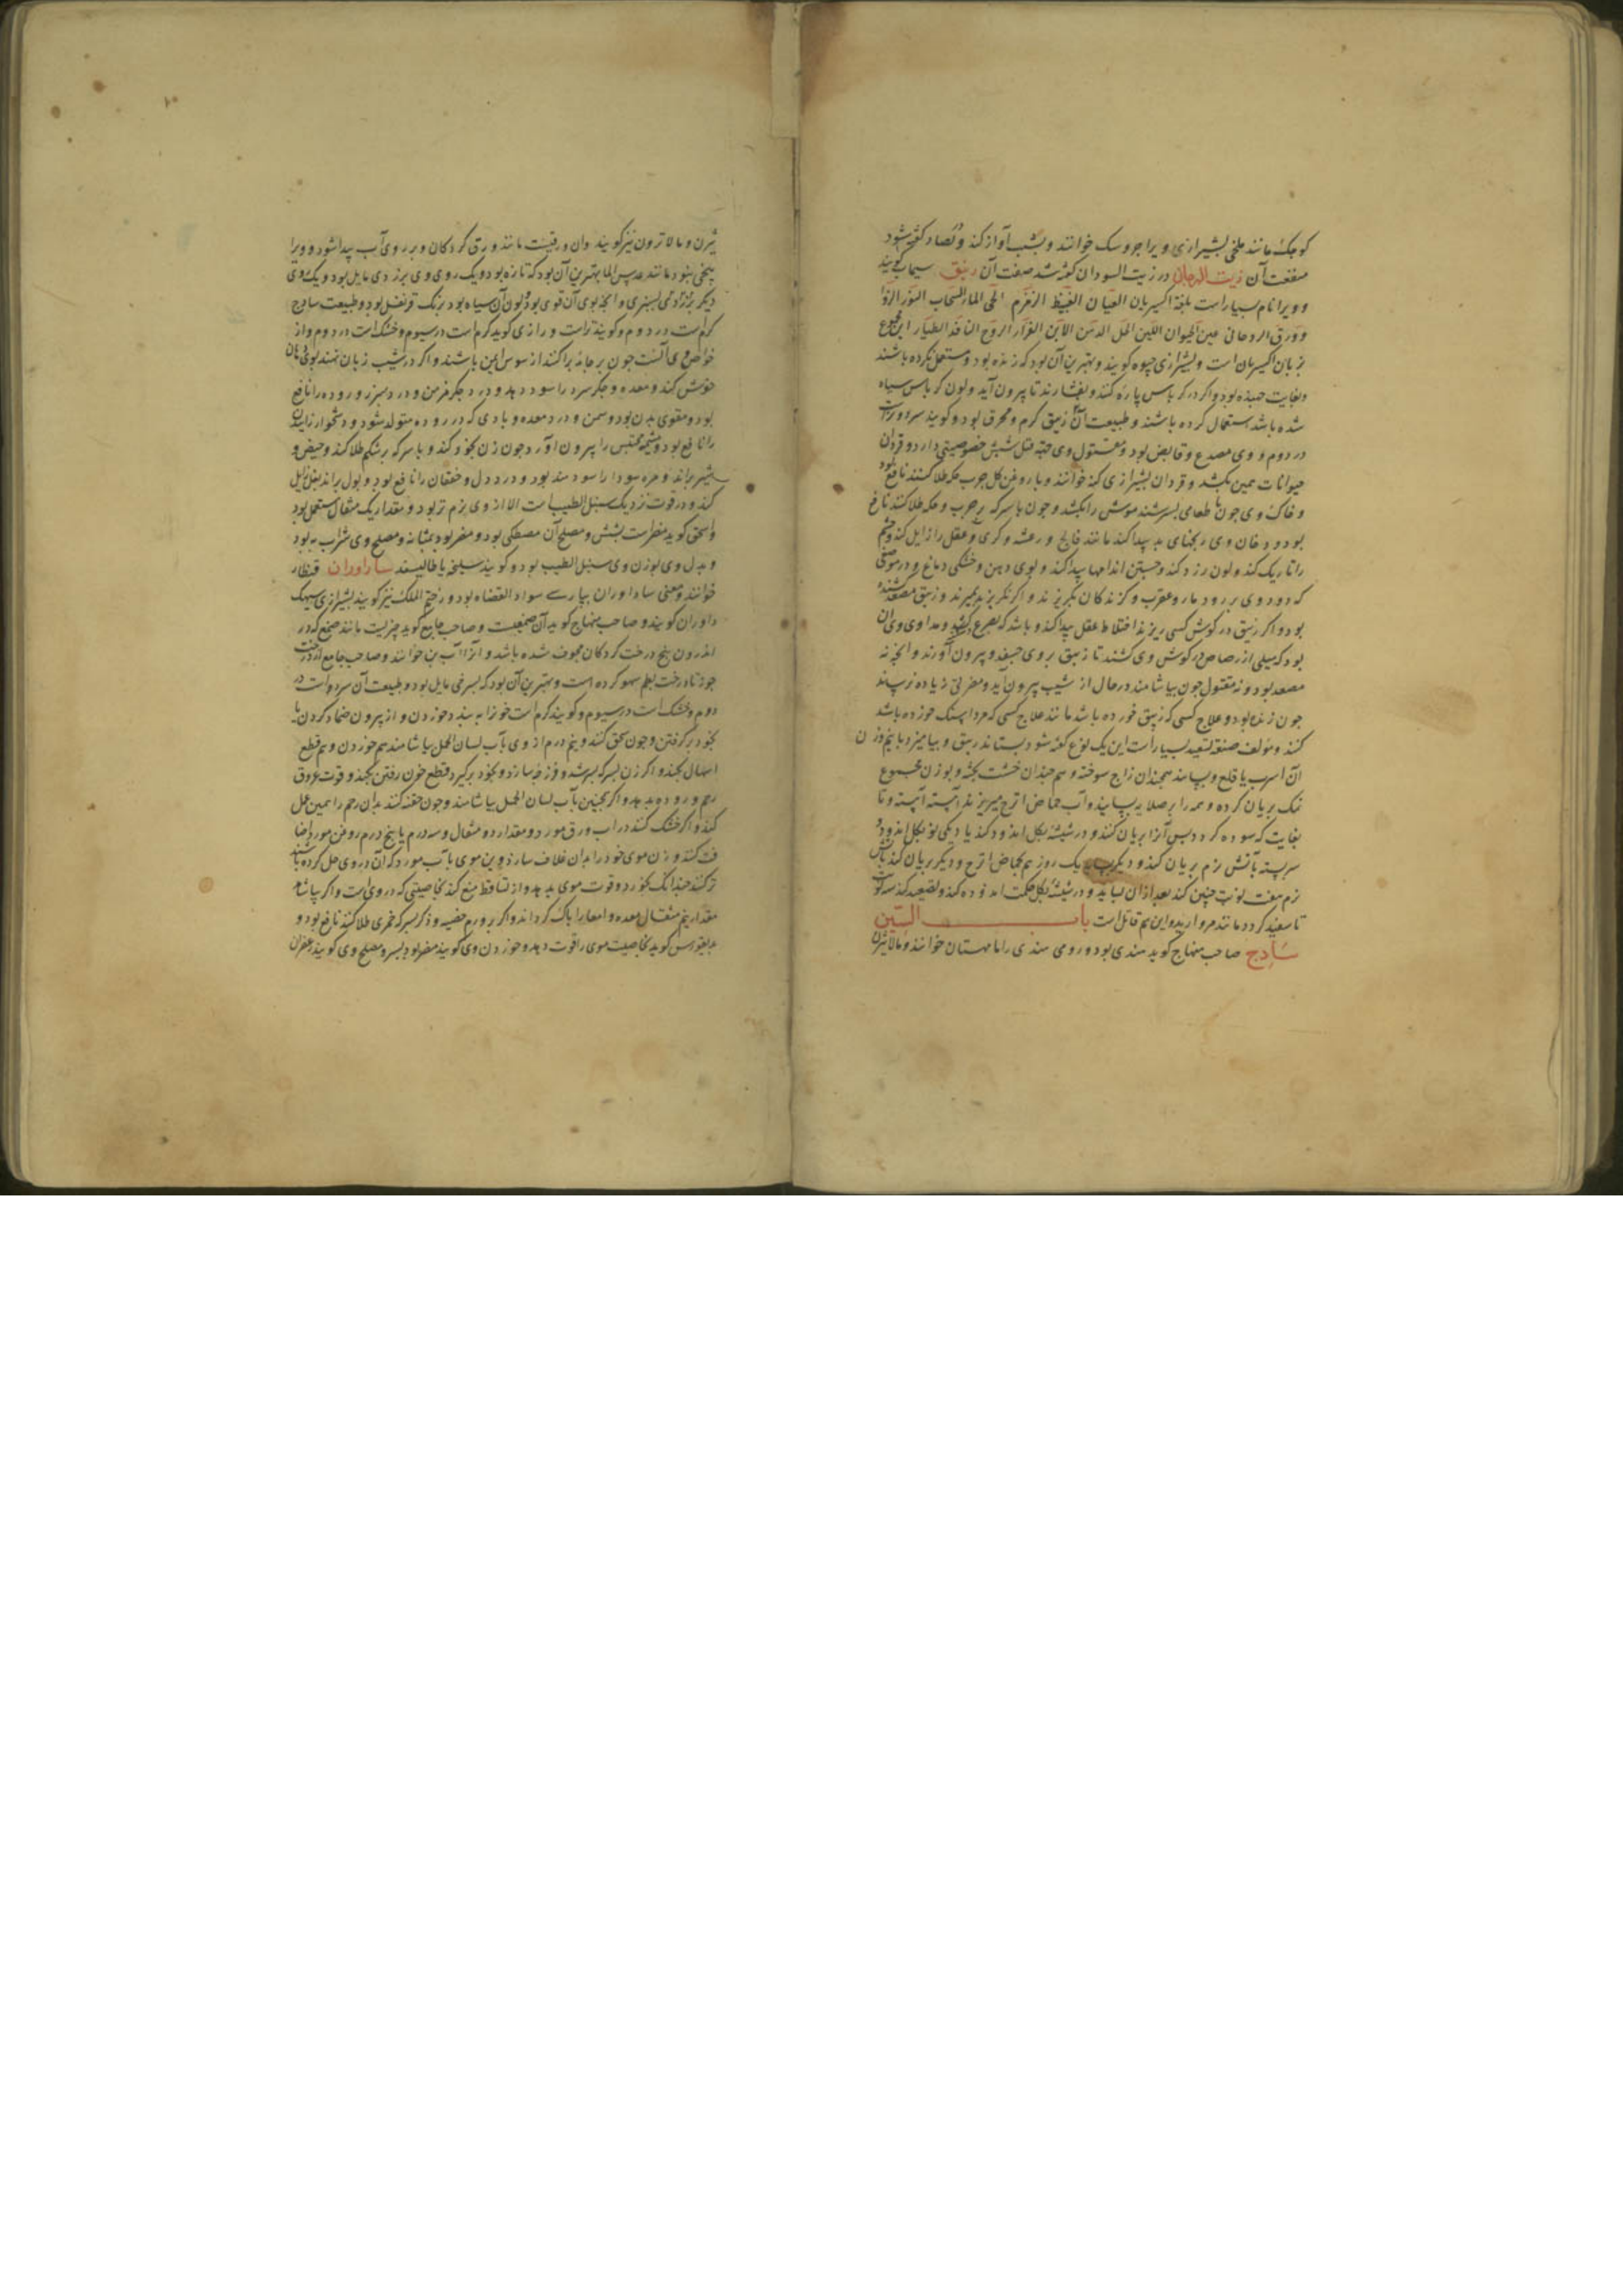 کوچک مانند ملخی بشیرازی ویرا جروسک خوانند و بشب آواز کند و بصاد گفته شود
منفعت آن زیت الرجان در زیت السودان گفته شد صفت آن زیبق سیماب گویند
و ویرا نام بسیارست بلغة اکسیریان العیان الغبیط الحی الماء السحاب
و ورق الروحانی عین الحیوان اللبن الفرار الروح النافذ الطیار این مجموع
بزبان اکسیریان است و بشیرازی جیوه گویند و بهترین آن بود که زنده بود و مستعمل نکرده باشند
و بغایت جنبنده بود و اگر در کرباس پاره کنند و بفشارند تا بیرون آید و لون کرباس سیاه
شده باشد استعمال کرده باشند و طبیعت آن زیبق گرم و محرق بود و گویند سرد و ترست
در دوم و وی مصدع و قابض بود و مقتول وی جهة قتل شپش خصوصیتی دارد و قردان
حیوانات همین بکشد و قردان بشیرازی کنه خوانند و با روغن گل جرب و حکه طلا کنند نافع بود
و خاک وی چون با طعامی بسرشند موش را بکشد و چون با سرکه بر جرب و حکه طلا کنند نافع
بود و دخان وی رنجهای بد پیدا کند مانند فالج و رعشه و کری و عقل را زایل کند و چشم
را تاریک کند و لون زرد کند و جستن اندامها پیدا کند و بوی دهن و خشکی دماغ و در موضعی
که دود وی برود مار و عقرب و گزندگان بگریزند و اگر نگریزند بمیرند و زیبق مصعد کشنده
بود و اگر زیبق در گوش کسی ریزند اختلاط عقل پیدا کند و باشد که بصرع کشد و مداوی وی آن
بود که میلی از رصاص در گوش وی کشند تا زیبق بر وی چسبد و بیرون آورند و آنچه نه
مصعد بود و نه مقتول چون بیاشامند در حال از شیب بیرون آید و مضرتی زیاده نرساند
چون زنده بود و علاج کسی که زیبق خورده باشد مانند علاج کسی که مرداسنگ خورده باشد
کنند و مؤلف صنعت تصعید بسیارست این یک نوع گفته شود بستانند زیبق و بیامیزد با نیم وزن
آن اسرب یا قلع و بساید همچندان زاج سوخته و هم چندان خشت پخته و بوزن مجموع
نمک بریان کرده و همه را بر صلایه بسایند و آب حماض اترج میریزند آهسته آهسته و تا
بغایت که سوده گردد پس آنرا بریان کنند و در شیشه بگل اندود کند یا دیگی نو بگل اندود و
سر بسته بآتش نرم بریان کند و دیگر یک روز هم بحماض اترج و دیگر بریان کند بآتش
نرم هفت نوبت چنین کند بعد از آن بساید و در شیشه بگل حکمت اندوده کند و تصعید کند سه نوبت
تا سفید گردد مانند مروارید و این هم قاتل است باب السین
ساذج صاحب منهاج گوید هندی بود و رومی هندی را مامهستان خوانند و مالابثرن
ثیرن و مالاترون نیز گویند و آن ورقیست مانند ورق گردکان و بر روی آب پیدا شود و ویرا
بیخی نبود مانند عدس الما بهترین آن بود که تازه بود و یک روی وی بزردی مایل بود و یک روی
دیگر بسبزی و آنچه بوی آن قوی بود و لون آن سیاه بود برنگ قرنفل بود و طبیعت ساذج
گرم است در دوم و گویند ترست و رازی گوید گرم است در سیوم و خشک است در دوم و از
خواص وی آنست چون بر جامه پراکنند از سوس ایمن باشند و اگر در شیب زبان نهند بوی دهان
خوش کند و معده و جگر سرد را سود دهد و درد جگر مزمن و درد سپرز و روده را نافع
بود و مقوی بدن بود و سمن و درد معده و بادی که در روده متولد شود و دشخوار زاییدن
را نافع بود و مشیمه محتبس را بیرون آورد چون زن بخود کند و با سرکه بر شکم طلا کند و حیض و
شیر براند و مره سودا را سودمند بود و درد دل و خفقان را نافع بود و بول براند
کند و در قوت نزدیک سنبل الطیب است الا از وی نرم تر بود و مقدار یک مثقال مستعمل بود
و اسحق گوید مضرست بشش و مصلح آن مصطکی بود و مضر بود بمثانه و مصلح وی شراب به بود
و بدل وی بوزن وی سنبل الطیب بود و گویند سلیخه یا طالیسفر ساراوران قنطار
خوانند و معنی ساداوران بپارسی سواد القضاه بود و ختم الملک نیز گویند بشیرازی سیهک
داوران گویند و صاحب منهاج گوید آن صمغیست و صاحب جامع گوید چیزیست مانند صمغ که در
اندرون بیخ درخت گردکان مجوف شده باشد و آنرا آب بن خوانند و صاحب جامع از درخت
جوز تا درخت بطم سهو کرده است و بهترین آن بود که بسرخی مایل بود و طبیعت آن سردست در
دوم و خشک است در سیوم و گویند گرم است خون را ببندد خوردن و از بیرون ضماد کردن یا
بخود برگرفتن و چون سحق کنند و نیم درم از وی بآب لسان الحمل بیاشامند هم خوردن و هم قطع
اسهال بکند و اگر زن بسرکه بسرشد و فرزجه سازد و بخود برگیرد قطع خون رفتن بکند و قوت عروق
رحم و روده بدهد و اگر همچنین بآب لسان الحمل بیاشامند و چون حقنه کنند بدان رحم را همین عمل
کند و اگر خشک کنند در آب ورق مورد و مقدار دو مثقال و سه درم یا پنج درم روغن مورد اضافت
کنند و زن موی خود را بدان غلاف سازد و بن موی بآب مورد که آن در وی حل کرده باشند
تر کند چندانک بخورد و قوت موی بدهد و از تساقط منع کند بخاصیتی که در وی است و اگر بیاشامد
مقدار نیم مثقال معده و امعا را پاک گرداند و اگر بر ورم خصیه و ذکر بسرکه خمری طلا کنند نافع بود و
بدیغورس گوید بخاصیت موی را قوت دهد و خوردن وی گویند مضر بود بسر و مصلح وی گویند زعفران